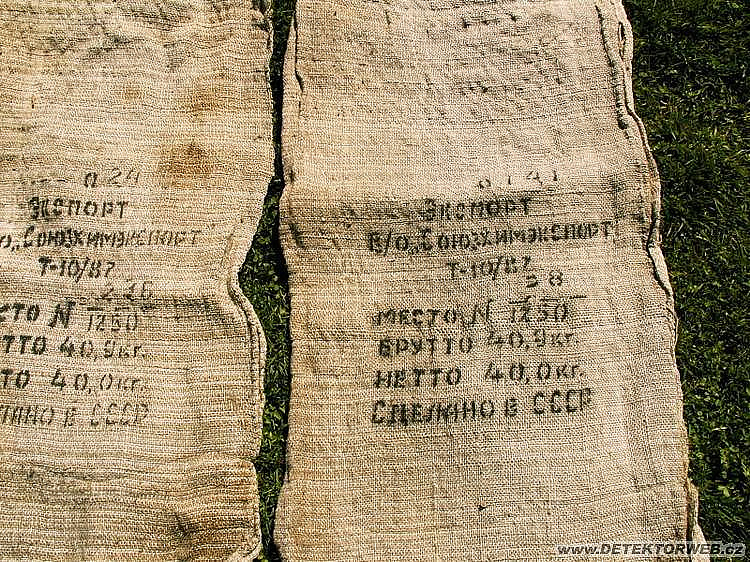 24
ЭКСПОРТ
/О„СОЮЗХИМЭКСПОРТ"
Т-10/87
236
СТО N 1250
ТТО 40,9кг.
ТО 40,0кг.
ЛАНО В СССР
ЭКСПОРТ
В/О„СОЮЗХИМЭКСПОРТ"
Т-10/87
38
МЕСТО N 1250
БРУТТО 40,9кг.
НЕТТО 40,0кг.
СДЕЛАНО В СССР
www.DETEKTORWEB.cz